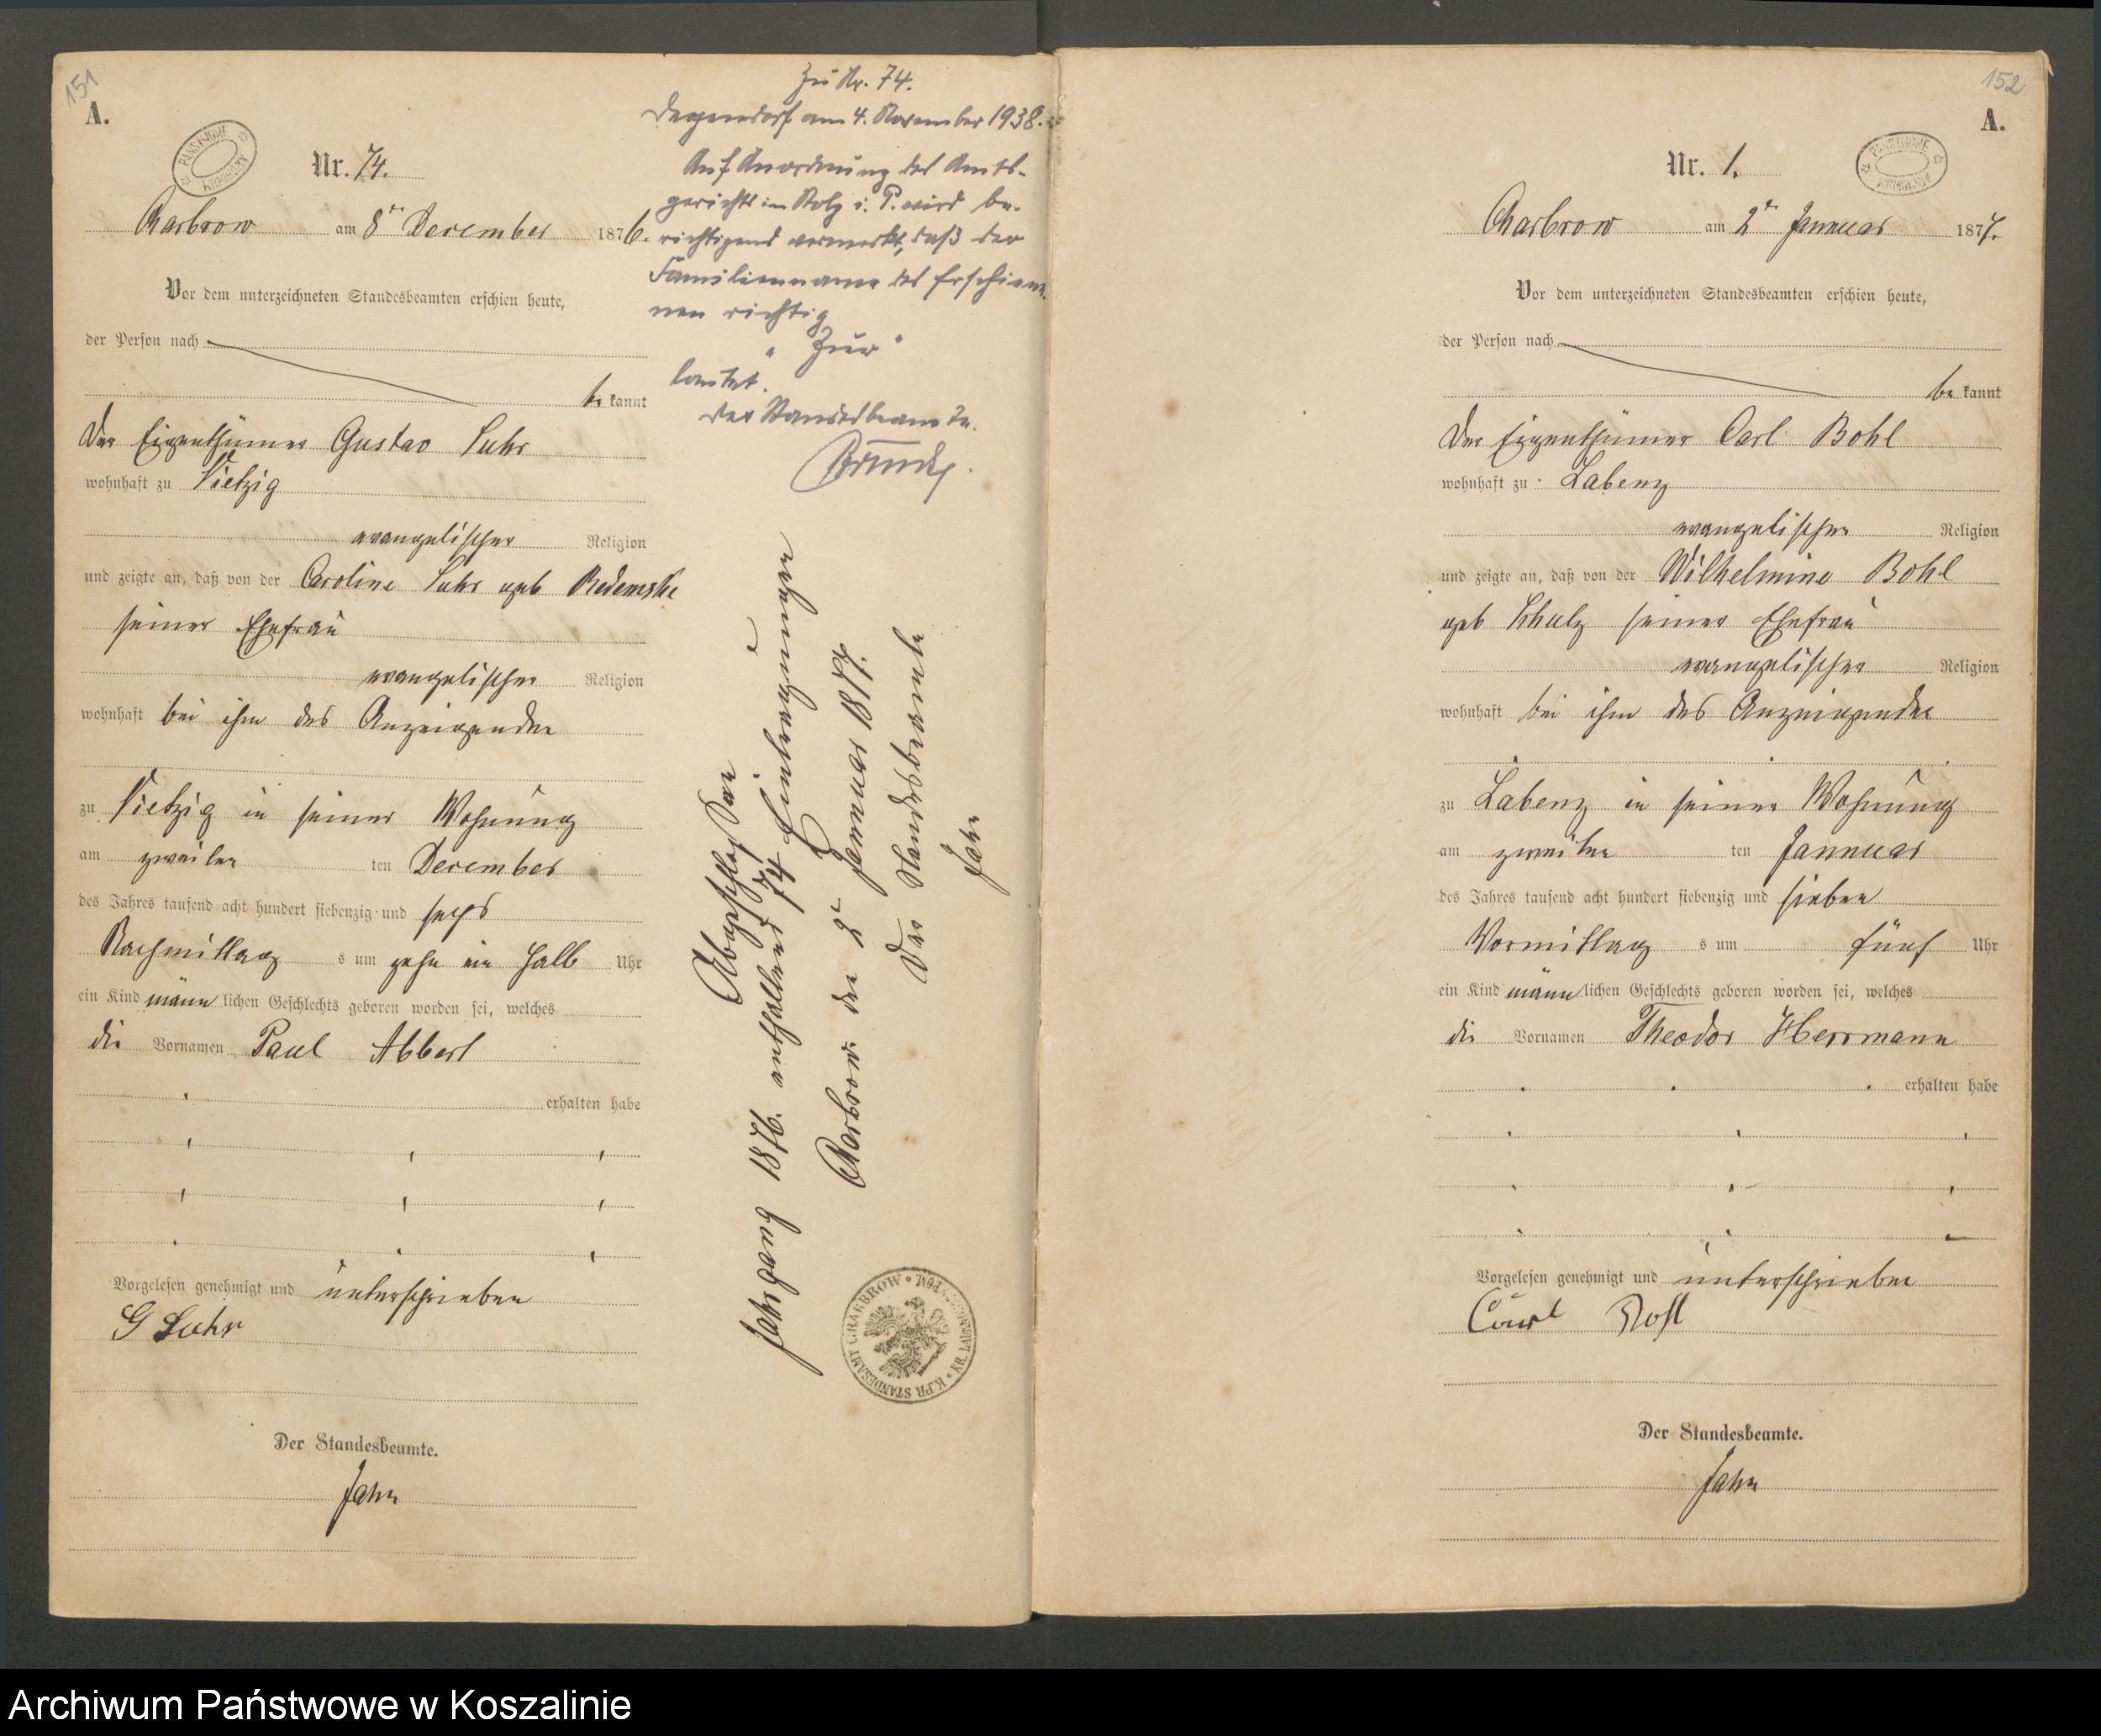 151
A.
Nr. 74.
Charbrow am 8ten December 1876.
Vor dem unterzeichneten Standesbeamten erschien heute,
der Person nach
be kannt
Der Eigenthümer Gustav Suhr
wohnhaft zu Vietzig
evangelischer Religion
und zeigte an, daß von der Caroline Suhr geb
seiner Ehefrau
evangelischer Religion
wohnhaft bei ihm des Anzeigenden
zu Vietzig in seiner Wohnung
am zweiten ten December
des Jahres tausend acht hundert siebenzig und sechs
Nachmittag s um zehn ein halb Uhr
ein Kind männ lichen Geschlechts geboren worden sei, welches
die Vornamen Paul Albert
erhalten habe
Vorgelesen genehmigt und unterschrieben
G Suhr
Der Standesbeamte.
Jahn
Zu Nr. 74.
Degendorf am 4. November 1938.
Auf Anordnung des Amts-
gerichts in Stolp i. P. wird be-
richtigend vermerkt, daß der
Familienname des Erschiene-
nen richtig
"Zur"
lautet.
Der Standesbeamte.
Abgeschlossen
Jahrgang 1876. enthaltend 74 Eintragungen
Charbrow den 2ten Januar 1877.
Der Standesbeamte
Jahn
K. PR. STANDESAMT CHARBROW • KR. LAUENBURG I/POM.
152
A.
Nr. 1.
Charbrow am 2ten Januar 1877.
Vor dem unterzeichneten Standesbeamten erschien heute,
der Person nach
be kannt
Der Eigenthümer Carl Bohl
wohnhaft zu Labenz
evangelischer Religion
und zeigte an, daß von der Wilhelmine Bohl
geb Schulz seiner Ehefrau
evangelischer Religion
wohnhaft bei ihm des Anzeigenden
zu Labenz in seiner Wohnung
am zweiten ten Januar
des Jahres tausend acht hundert siebenzig und sieben
Vormittag s um fünf Uhr
ein Kind männ lichen Geschlechts geboren worden sei, welches
die Vornamen Theodor Herrmann
erhalten habe
Vorgelesen genehmigt und unterschrieben
Bohl
Der Standesbeamte.
Jahn
Archiwum Państwowe w Koszalinie